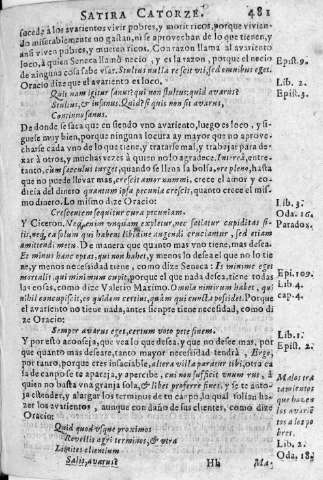 SATIRA CATORZE. 481
sucede à los avarientos vivir pobres, y morir ricos, porque vivien-
do miserablemente no gastan, ni se aprovechan de lo que tienen, y
assi viven pobres, y mueren ricos. Con razon llama al avariento
loco, à quien Seneca llamò necio, y es la razon, porque el necio
de ninguna cosa sabe usar. Stultus nulla re scit uti, sed omnibus eget.
Oracio dize que el avariento es loco.
Quis nam igitur sanus? qui non stultus: quid avarus?
Stultus, & insanus. Quid? si quis non sit avarus,
Continuo sanus.
De donde se saca que en siendo vno avariento, luego es loco, y si-
guese muy bien, porque ninguna locura ay mayor que no aprove-
charse cada vno de lo que tiene, y tratarse mal, y trabajar para de-
xar à otros, y muchas vezes à quien no lo agradece. Interea, entre-
tanto, cum sacculus turget, quando se llena la bolsa, ore pleno, hasta
que no puede llevar mas, crescit amor nummi, crece el amor, y co-
dicia del dinero quantum ipsa pecunia crescit, quanto crece el mis-
mo dinero. Lo mismo dize Oracio:
Crescentem sequitur cura pecuniam.
Y Ciceron. Neq, enim vnquam expletur, nec satiatur cupiditas si-
tis, neq, ea solum qui habent libidine augendi cruciantur, sed etiam
amittendi metu. De manera que quanto mas vno tiene, mas desea.
Et minus hanc optat, qui non habet, y menos lo desea el que no lo tie
ne, y menos necessidad tiene, como dize Seneca: Is minime eget
mortalis, qui minimum cupit, porque el que nada desea, tiene todas
las cosas, como dize Valerio Maximo. Omnia nimirum habet, qui
nihil concupiscit, eo quidem certius, quàm qui cuncta possidet. Porque
el avariento no tiene nada, antes siempre tiene necessidad, como di
ze Oracio:
Semper avarus eget, certum voto pete finem.
Y por esto aconseja, que vea lo que desea, y que no desee mas, por
que quanto mas deseare, tanto mayor necessidad tendrà, Ergo,
por tanto, porque eres insaciable, altera villa paratur tibi, otra ca
sa de campo se te apareja, y apercibe, cui non sufficit vnum rus, à
quien no basta vna granja sola, & libet proferre fines, y se te anto-
ja estender, y alargar los terminos de tu campo, lo qual solian ha-
zer los avarientos, aunque con daño de sus clientes, como dize
Oracio:
Quid quod vsque proximos
Revellis agri terminos, & vltra
Limites clientium
Salis, avarus?
Hh Ma-
Epist. 9.
Lib. 2.
Epist. 3.
Lib. 3.
Oda. 16.
Parados.
Epi. 109.
Lib. 4.
cap. 4.
Lib. 1.
Epist. 2.
Malos tra
tamientos
que hacen
los avariẽ
tos a los po
bres.
Lib. 2.
Oda. 18.